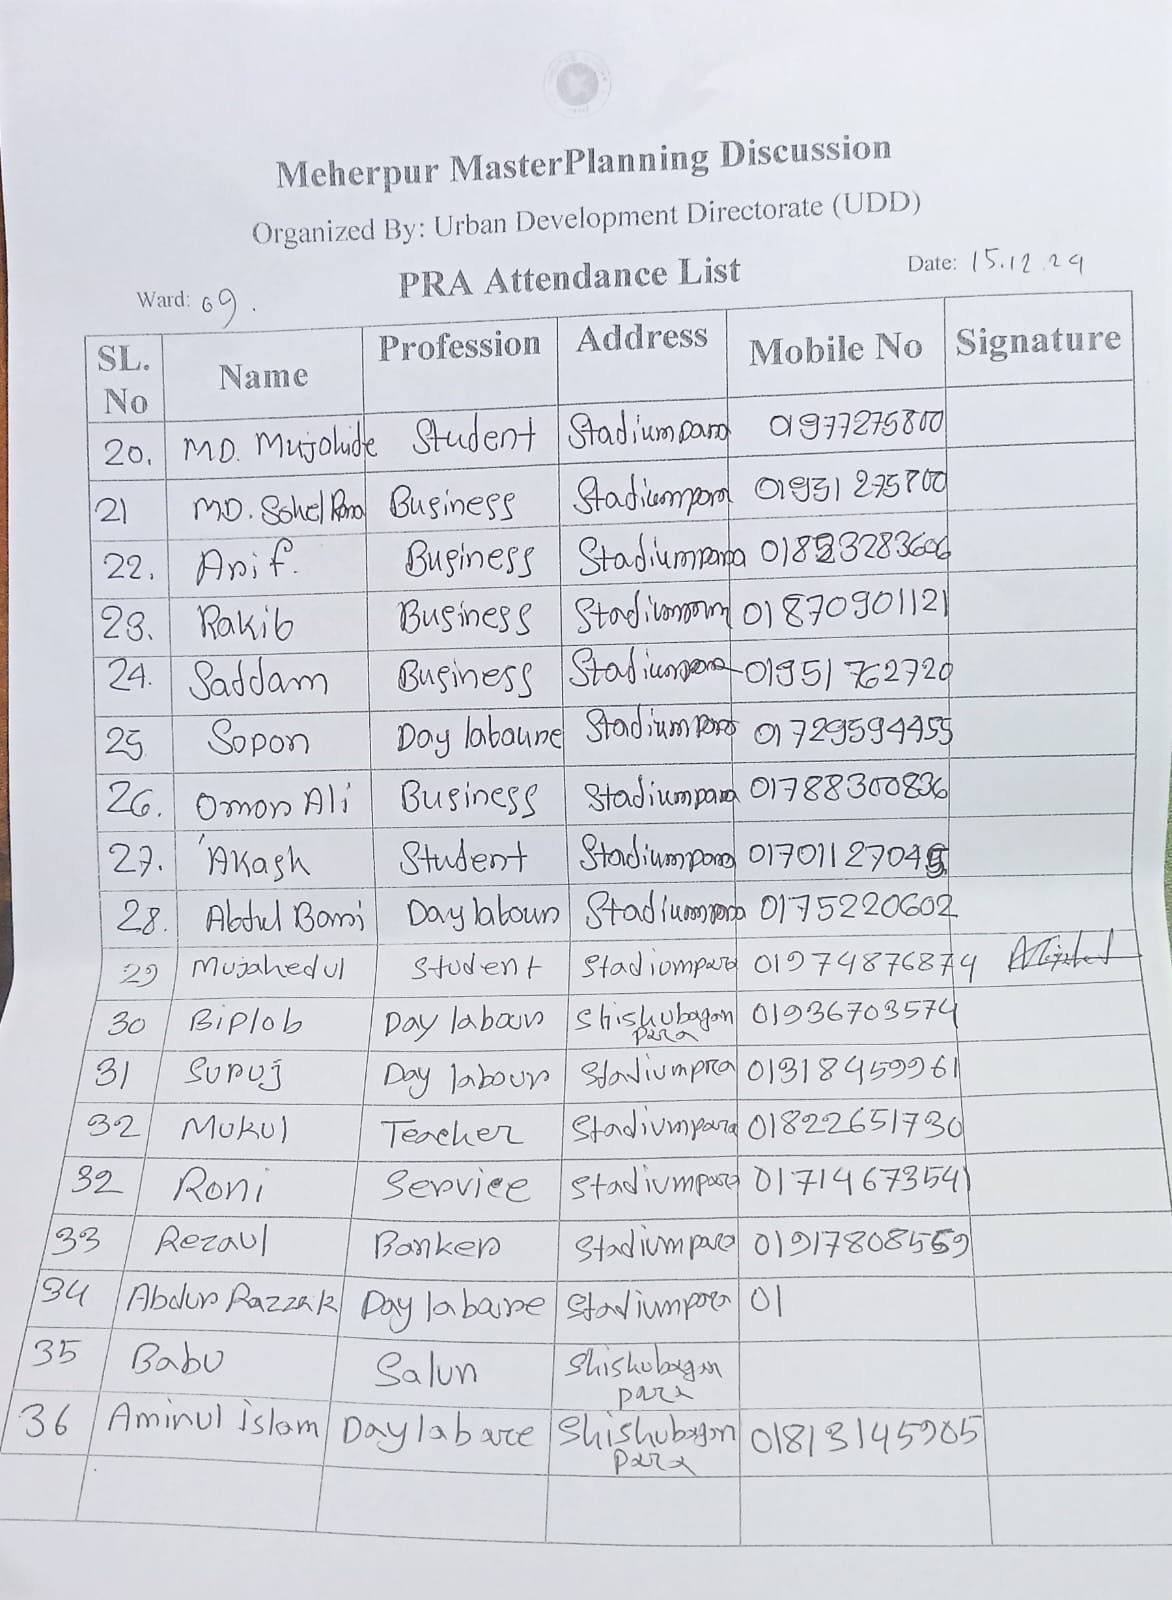 Meherpur MasterPlanning Discussion
Organized By: Urban Development Directorate (UDD)
PRA Attendance List
Ward: 09. Date: 15.12.24
SL. No Name Profession Address Mobile No Signature
20. MD. Mujohide Student Stadiumpara 01977275800
21 MD. Sohel Rana Business Stadiumpara 01931275800
22. Arif. Business Stadiumpara
23. Rakib Business 01870901121
24. Saddam Business Stadiumpara 01951762720
25 Sopon Day laboure Stadiumpara 01729594455
26. Omor Ali Business Stadiumpara 01788300836
27. Akash Student Stadiumpara
28. Abdul Bari Day labour Stadiumpara 0175220602
29 Mujahedul Student Stadiumpara 01974876874
30 Biplob Day labour Shishubagan para 01936703574
31 Suruj Day labour Stadiumpra 01318459961
32 Mukul Teacher Stadiumpara 01822651730
32 Roni Service Stadiumpara 01714673541
33 Rezaul Banker Stadiumpara 01917808559
34 Abdur Razzak Day labaure Stadiumpara 01
35 Babu Salun Shishubagan para
36 Aminul islam Day labare Shishubagan para 01813145905